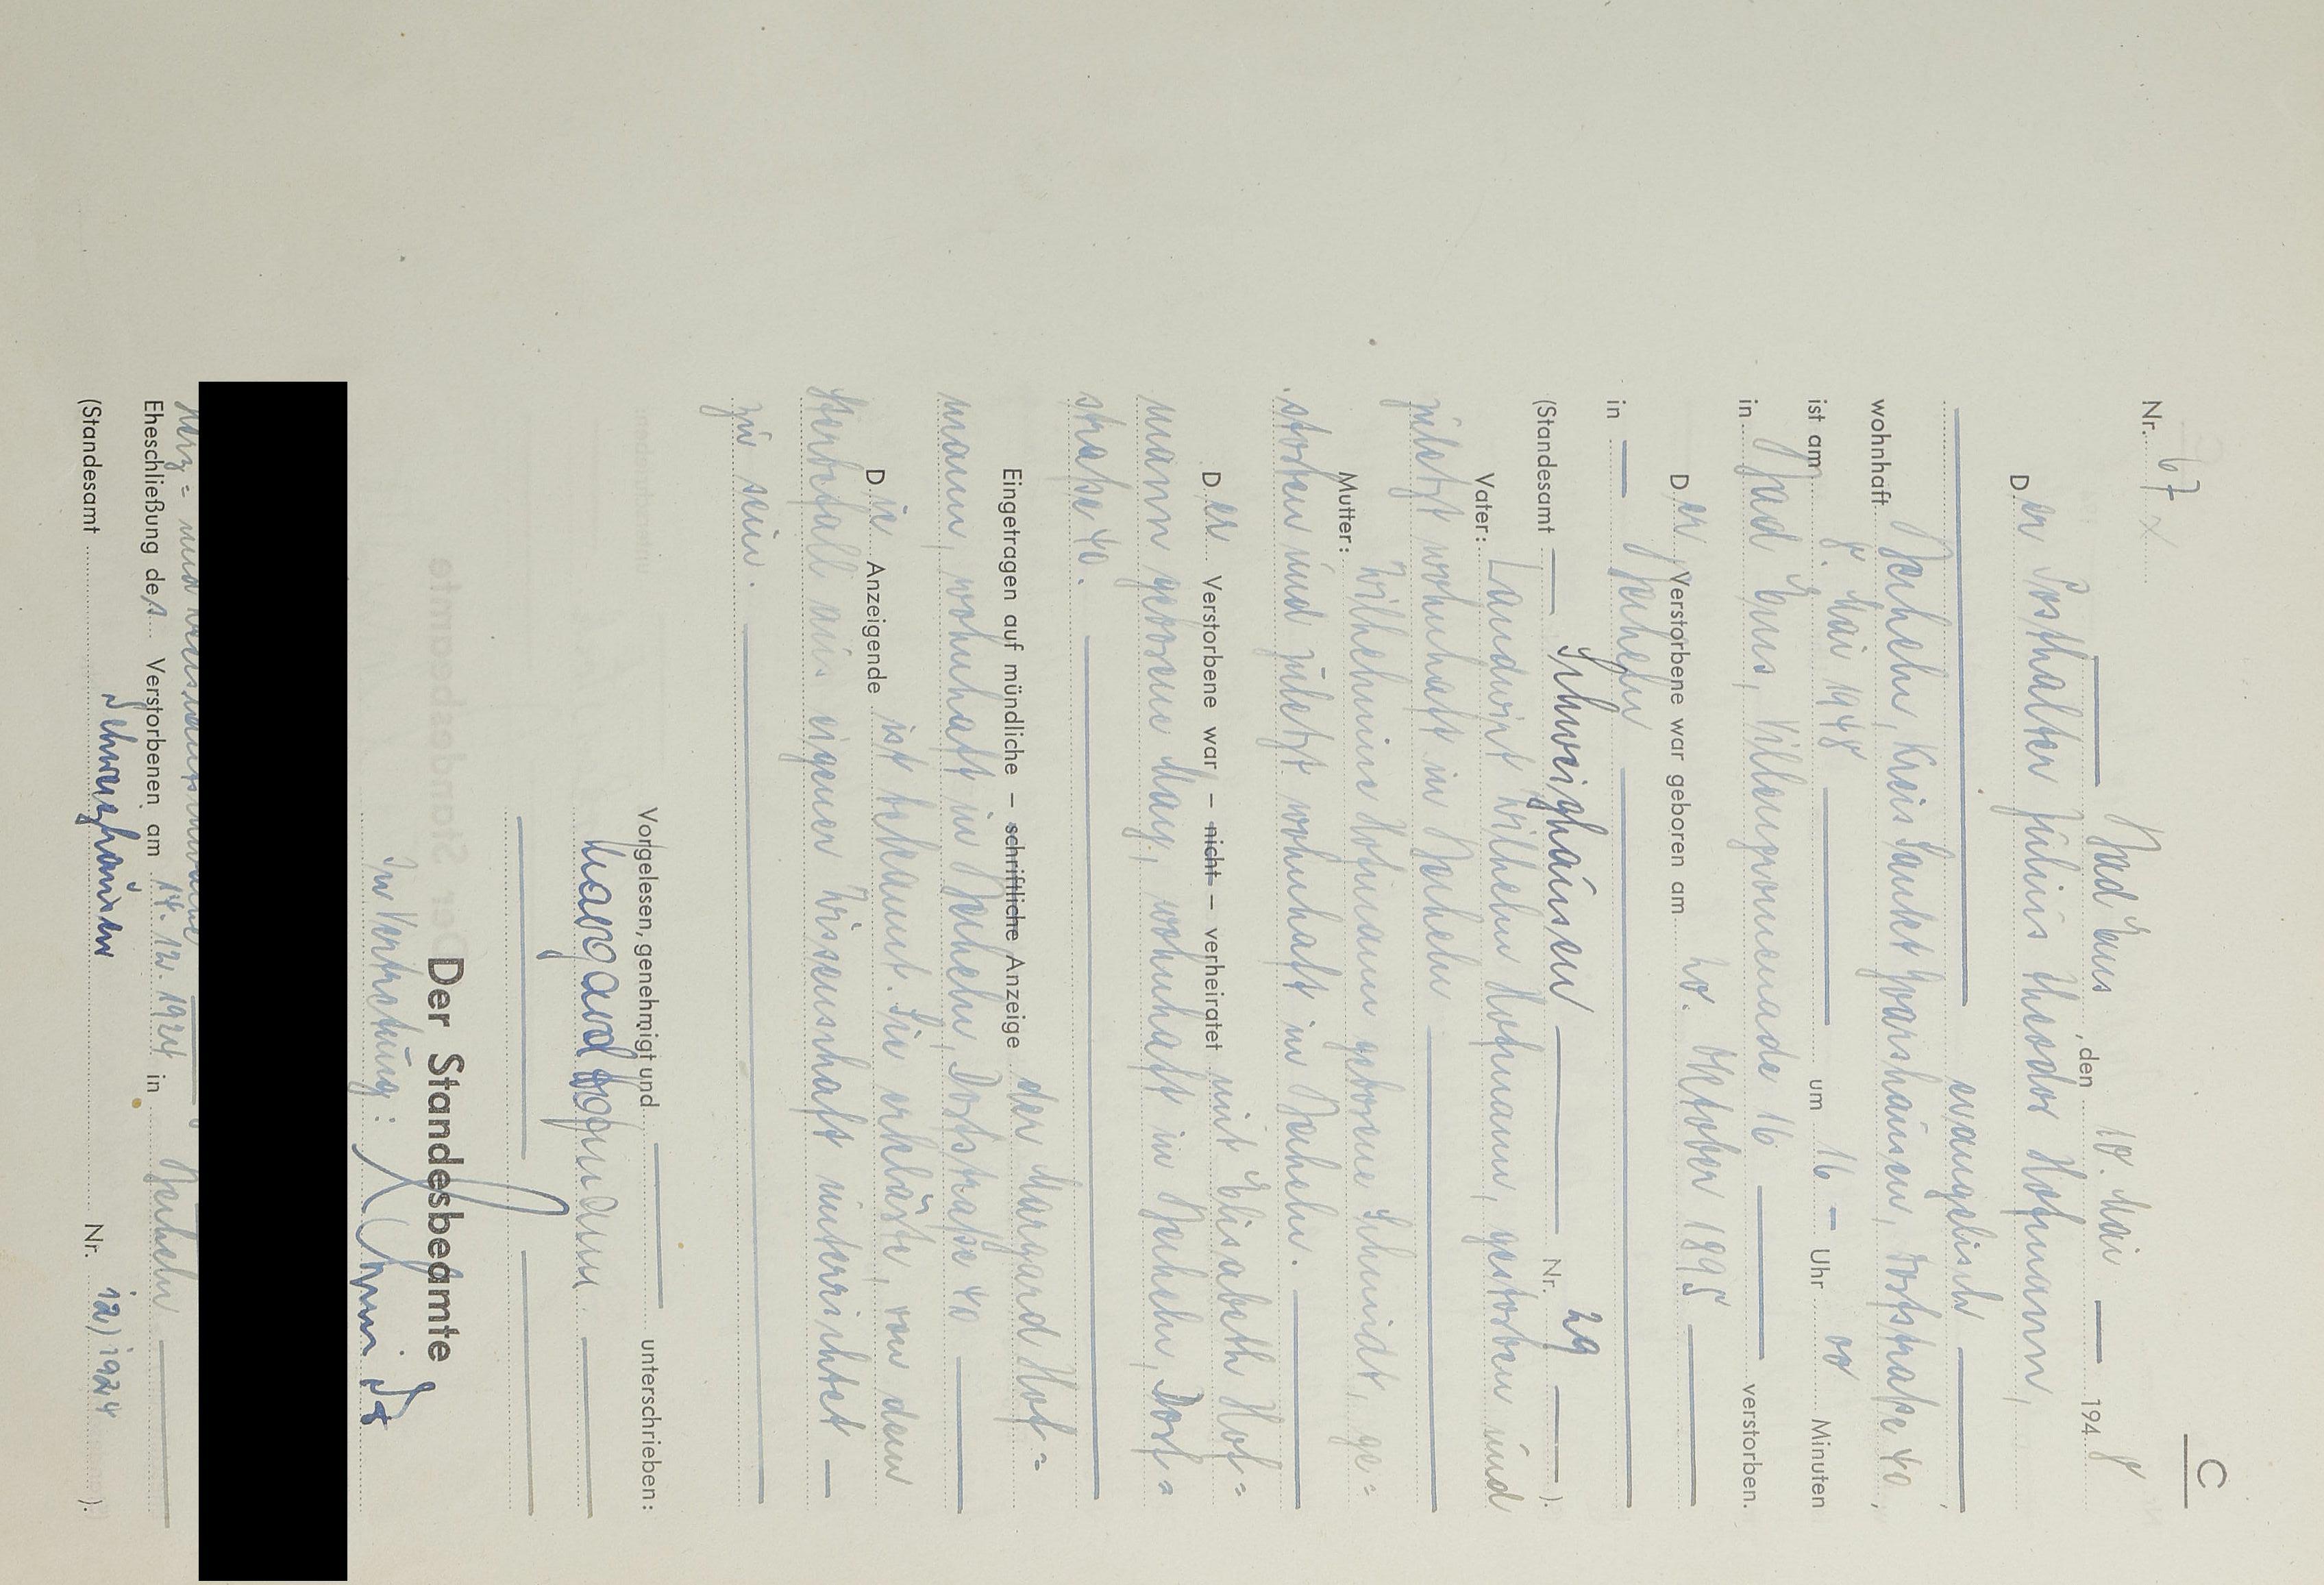 C
Nr. 67
Bad Ems, den 10. Mai 1948
Der Posthalter Julius Theodor Hofmann,
evangelisch
wohnhaft Becheln, Kreis Sankt Goarshausen, Dorfstraße 40,
ist am 8. Mai 1948 um 16 Uhr 00 Minuten
in Bad Ems, Villenpromenade 16 verstorben.
Der Verstorbene war geboren am 20. Oktober 1895
in Becheln
(Standesamt Schweighausen Nr. 29 ).
Vater: Landwirt Wilhelm Hofmann, gestorben und
zuletzt wohnhaft in Becheln
Mutter: Wilhelmine Hofmann geborene Schmidt, ge=
storben und zuletzt wohnhaft in Becheln.
Der Verstorbene war – nicht – verheiratet mit Elisabeth Hof=
mann geborene May, wohnhaft in Becheln, Dorf=
straße 40.
Eingetragen auf mündliche – schriftliche Anzeige der Margard Hof=
mann, wohnhaft in Becheln, Dorfstraße 40
Die Anzeigende ist bekannt. Sie erklärte, von dem
Sterbefall aus eigener Wissenschaft unterrichtet
zu sein.
Vorgelesen, genehmigt und unterschrieben:
Margard Hofmann
Der Standesbeamte
In Vertretung:
Herz= und
Eheschließung des Verstorbenen am 14. 12. 1924 in Becheln
(Standesamt Schweighausen Nr. 12/1924 ).